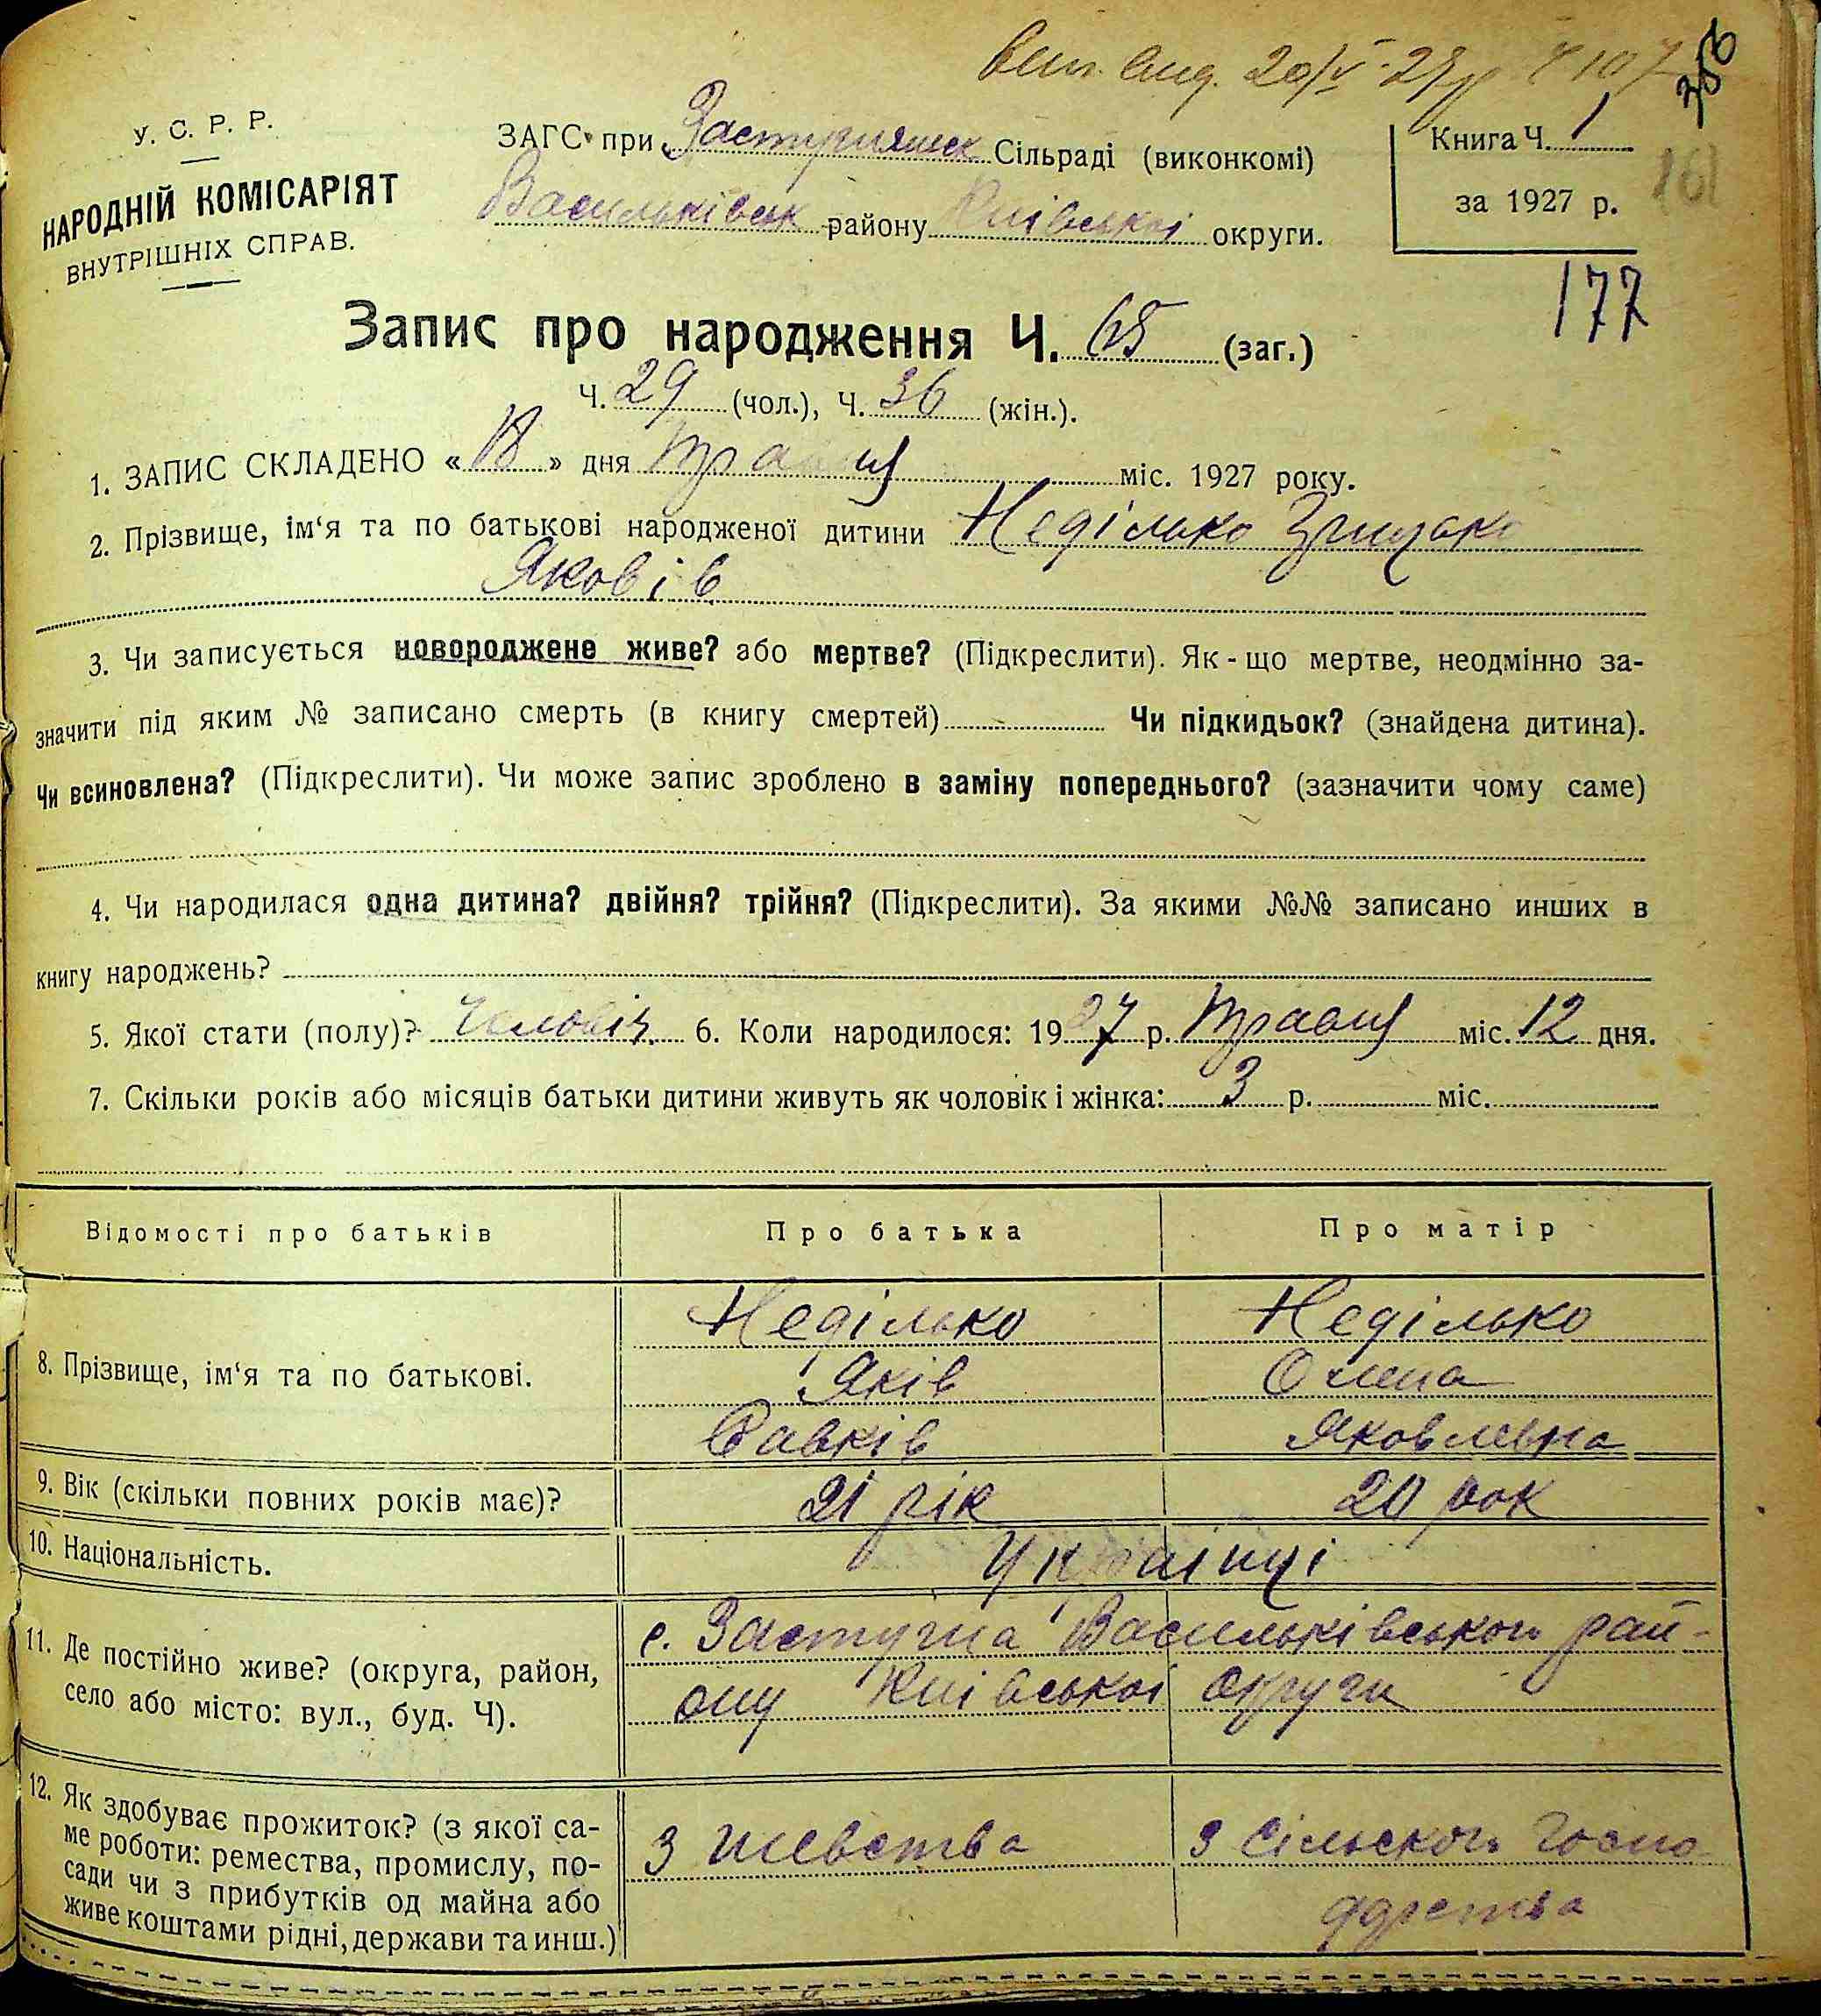 356
У. С. Р. Р.
НАРОДНІЙ КОМІСАРІЯТ
ВНУТРІШНІХ СПРАВ.
ЗАГС при Застугнянск Сільраді (виконкомі)
Васильківськ району Київської округи.
Книга Ч. 1
за 1927 р.
161
177
Запис про народження Ч. 65 (заг.)
Ч. 29 (чол.), Ч. 36 (жін.).
1. ЗАПИС СКЛАДЕНО «18» дня травня міс. 1927 року.
2. Прізвище, ім‘я та по батькові народженої дитини Неділько Грицько
Яковів
3. Чи записується новороджене живе? або мертве? (Підкреслити). Як-що мертве, неодмінно за-
значити під яким № записано смерть (в книгу смертей) Чи підкидьок? (знайдена дитина).
Чи всиновлена? (Підкреслити). Чи може запис зроблено в заміну попереднього? (зазначити чому саме)
4. Чи народилася одна дитина? двійня? трійня? (Підкреслити). За якими №№ записано инших в
книгу народжень?
5. Якої стати (полу)? Чоловіч. 6. Коли народилося: 1927 р. Травня міс. 12 дня.
7. Скільки років або місяців батьки дитини живуть як чоловік і жінка: 3 р. міс.
Відомості про батьків Про батька Про матір
8. Прізвище, ім‘я та по батькові.
Неділько Неділько
Яків Олена
Савків Яковлевна
9. Вік (скільки повних років має)? 21 рік 20 рок
10. Національність. Українці
11. Де постійно живе? (округа, район,
село або місто: вул., буд. Ч).
с. Застугна Васильківського рай-
ону Київської округи
12. Як здобуває прожиток? (з якої са-
ме роботи: ремества, промислу, по-
сади чи з прибутків од майна або
живе коштами рідні, держави та инш.)
З шевства З сільского госпо
дарства